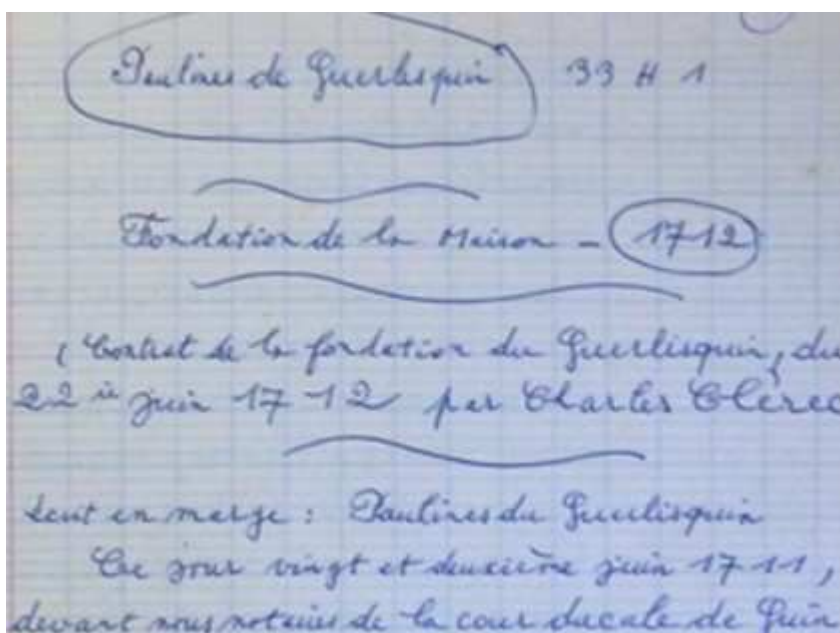 Paulines de Guerlesquin 33 H 1
Fondation de la Maison - 1712
( Contrat de la fondation du Guerlisquin, du
22 ie juin 1712 par Charles Clérec
en marge : Paulines du Guerlisquin
Ce jour vingt et deuxième juin 1711,
devant nous notaires de la cour ducale de Guin